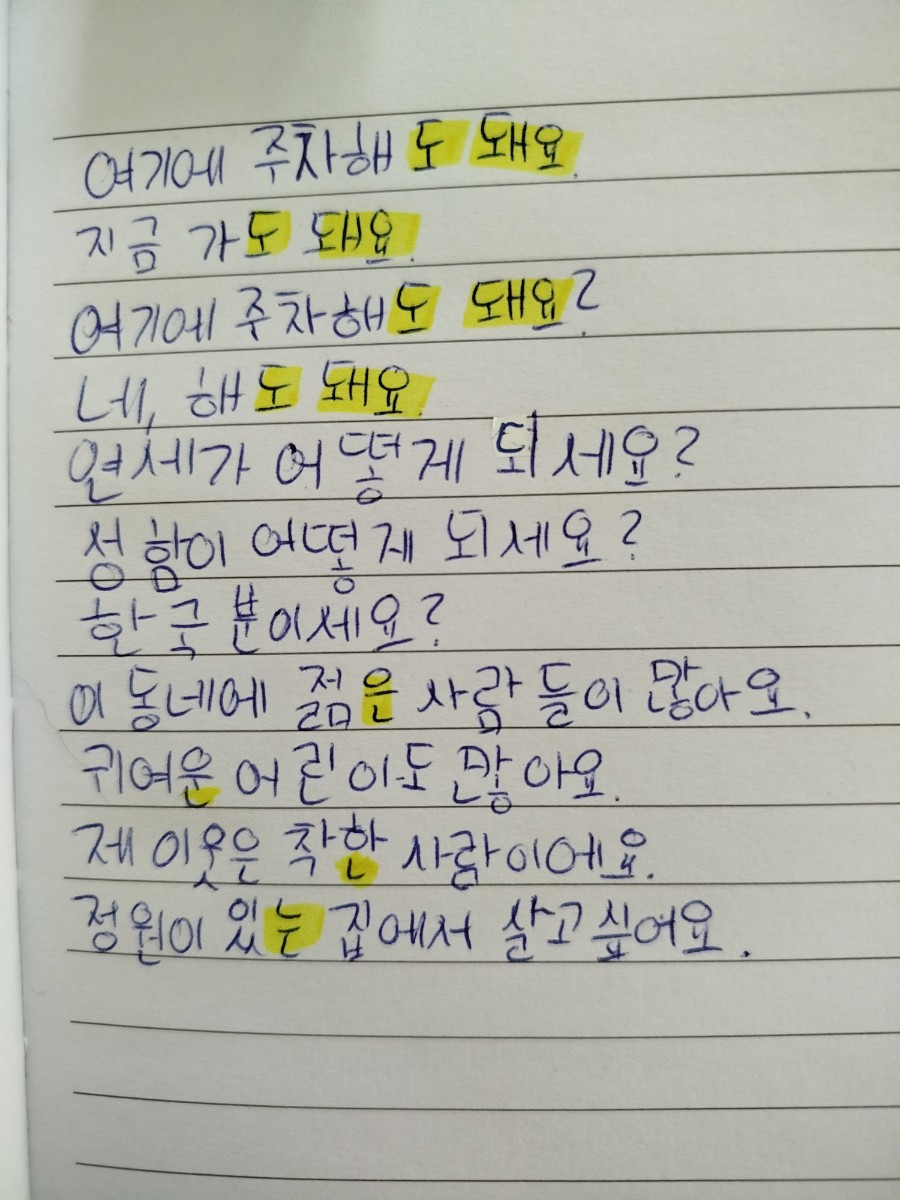 여기에 주차해도 돼요.
지금 가도 돼요.
여기에 주차해도 돼요?
네, 해도 돼요.
연세가 어떻게 되세요?
성함이 어떻게 되세요?
한국 분이세요?
이 동네에 젊은 사람들이 많아요.
귀여운 어린이도 많아요.
제 이웃은 착한 사람이에요.
정원이 있는 집에서 살고 싶어요.